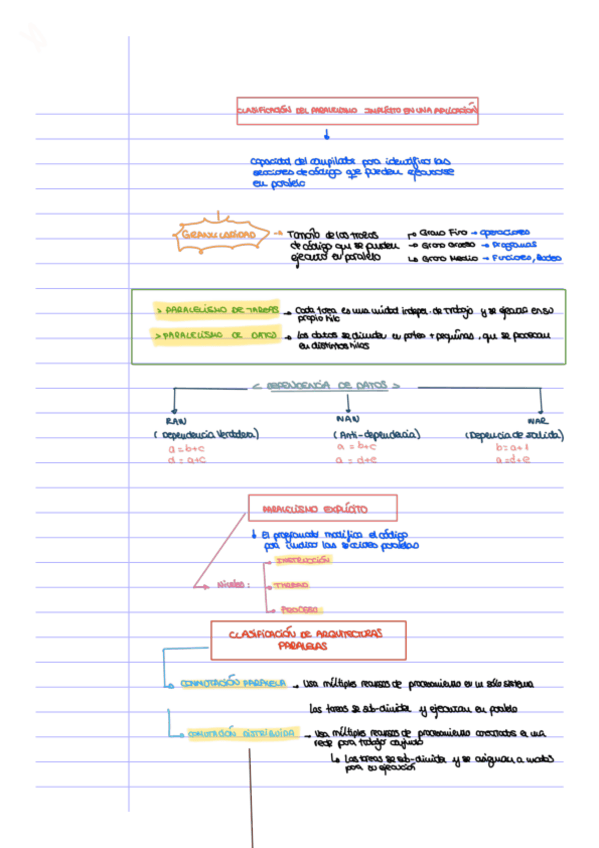 CLASIFICACIÓN DEL PARALELISMO IMPLÍCITO EN UNA APLICACIÓN
capacidad del compilador para identificar las
secciones de código que pueden ejecutarse
en paralelo
GRANULARIDAD → Tamaño de los trozos
de código que se pueden
ejecutar en paralelo
Grano Fino → operaciones
Grano Grueso → Programas
Grano Medio → Funciones, Bucles
> PARALELISMO DE TAREAS → Cada tarea es una unidad indepen. de trabajo y se ejecutar en su
propio hilo
> PARALELISMO DE DATOS → los datos se dividen en partes + pequeñas, que se procesan
en distintos hilos
< DEPENDENCIA DE DATOS >
RAW
WAR
(Dependencia Verdadera)
(Anti-dependencia)
(Depencia de salida)
a = b+c
a = b+c
b = a+1
d = a+c
a = d+e
a = d+e
PARALELISMO EXPLÍCITO
El programador modifica el código
para indicar las secciones paralelas
Niveles:
INSTRUCCIÓN
THREAD
PROCESO
CLASIFICACIÓN DE ARQUITECTURAS
PARALELAS
COMPUTACIÓN PARALELA → Usa múltiples recursos de procesamiento en un sólo sistema
Las tareas se sub-dividen y ejecutan en paralelo
COMPUTACIÓN DISTRIBUIDA → Usa múltiples recursos de procesamiento conectados en una
red para trabajo conjunto
Las tareas se sub-dividen y se asignan a nodos
para su ejecución